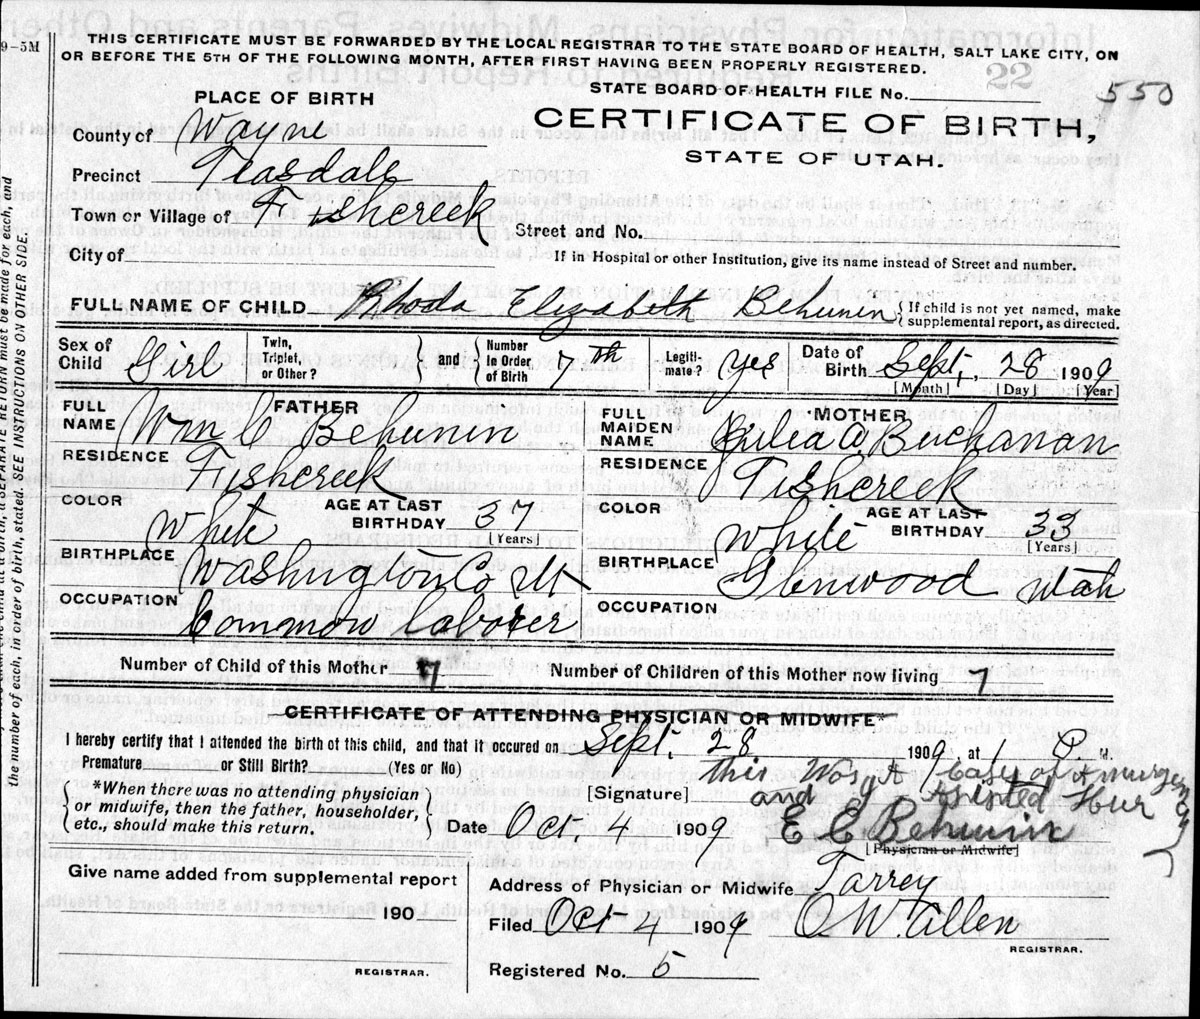 9-5M
THIS CERTIFICATE MUST BE FORWARDED BY THE LOCAL REGISTRAR TO THE STATE BOARD OF HEALTH, SALT LAKE CITY, ON
OR BEFORE THE 5TH OF THE FOLLOWING MONTH, AFTER FIRST HAVING BEEN PROPERLY REGISTERED.
22
550
STATE BOARD OF HEALTH FILE No.
PLACE OF BIRTH
CERTIFICATE OF BIRTH,
STATE OF UTAH.
County of Wayne
Precinct Teasdale
Town or Village of Fishcreek
Street and No.
City of
If in Hospital or other Institution, give its name instead of Street and number.
FULL NAME OF CHILD Rhoda Elizabeth Behunin { If child is not yet named, make supplemental report, as directed.
Sex of Child Girl Twin, Triplet, or Other? } and { Number in Order of Birth 7th Legiti- mate? yes Date of Birth Sept. 28 1909
[Month] [Day] [Year]
FATHER
FULL NAME Wm C Behunin
RESIDENCE Fishcreek
COLOR White AGE AT LAST BIRTHDAY 37 [Years]
BIRTHPLACE Washington Co Ut
OCCUPATION Common Laborer
MOTHER
FULL MAIDEN NAME Julea A Buchanan
RESIDENCE Fishcreek
COLOR White AGE AT LAST BIRTHDAY 33 [Years]
BIRTHPLACE Glenwood Utah
OCCUPATION
Number of Child of this Mother 7 Number of Children of this Mother now living 7
CERTIFICATE OF ATTENDING PHYSICIAN OR MIDWIFE*
I hereby certify that I attended the birth of this child, and that it occured on Sept. 28 1909 at 1 P M.
Premature or Still Birth? (Yes or No)
this Was A Case of Amurgency
[Signature] and I Asisted Hur
*When there was no attending physician or midwife, then the father, householder, etc., should make this return.
Date Oct 4 1909 E C Behunin
[Physician or Midwife]
Give name added from supplemental report
190
REGISTRAR.
Address of Physician or Midwife Torrey
Filed Oct 4 1909 O. W. Allen
REGISTRAR.
Registered No. 5
the number of each, in order of birth, stated. SEE INSTRUCTIONS ON OTHER SIDE.